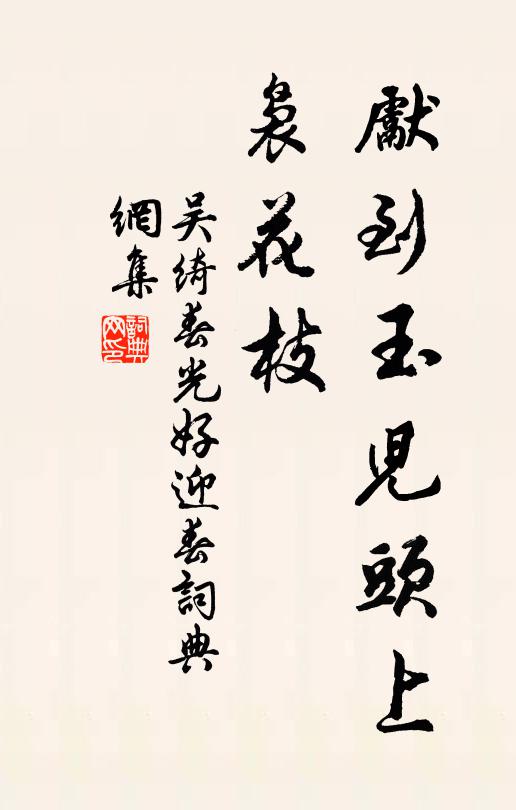 獻到玉児頭上
裊花枝
吴綺春光好迎春詞典
網集
詞典
网印